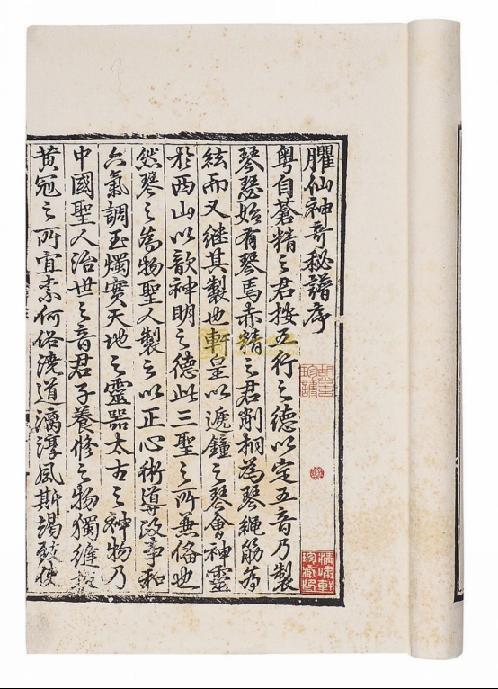 臞仙神奇秘譜序
粵自蒼精之君按五行之德以定五音乃製
琴瑟始有琴焉赤精之君削桐為琴繩筋為
絃而又継其製也軒皇以遞鐘之琴會神靈
於西山以歆神明之德此三聖之所無偹也
然琴之為物聖人製之以正心術導政事和
六氣調玉燭實天地之靈器太古之神物乃
中國聖人治世之音君子養修之物獨縫
黃冠之所宜柰何俗澆道漓淳風斯竭致使